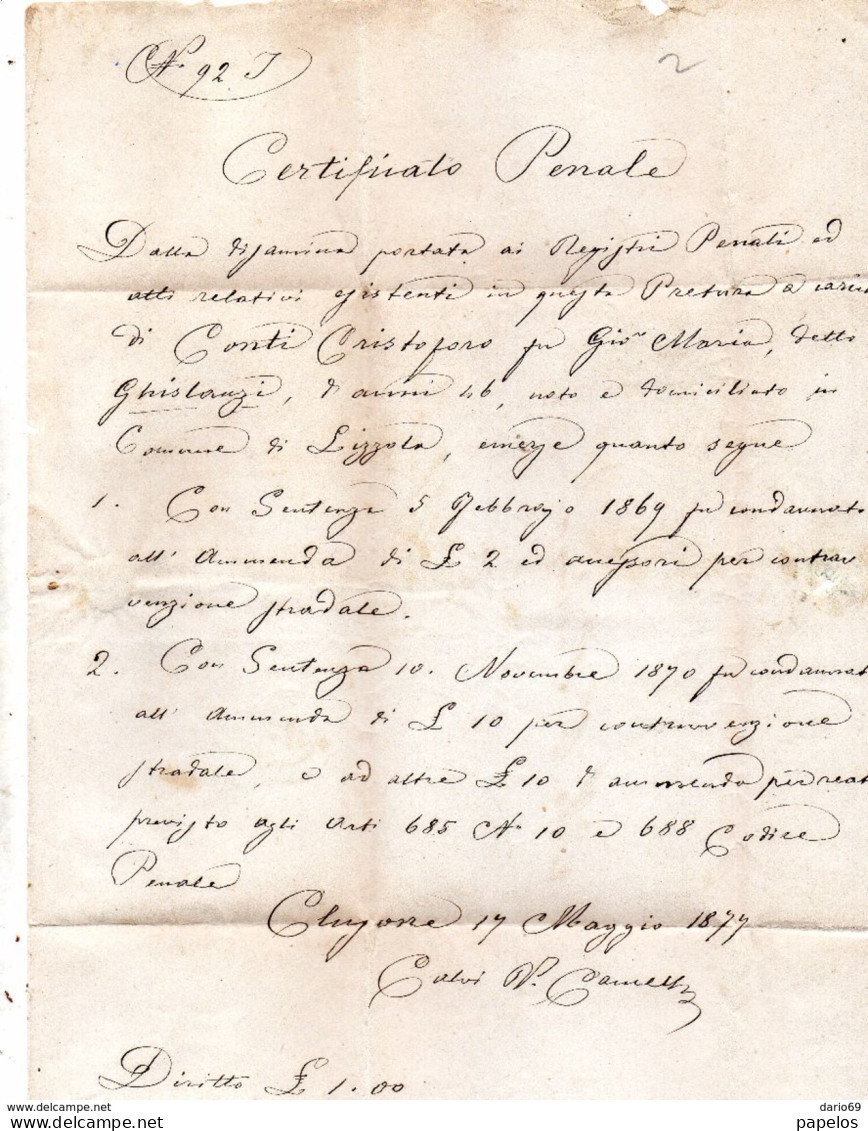 N.° 92 I
2
Certificato Penale
Dalla disamina portata ai Registri Penali ed
atti relativi esistenti in questa Pretura a caric
di Conti Cristoforo fu Gio.n Maria, detto
Ghislanzi, d'anni 46, nato e domiciliato in
Comune di Lizzola, emerge quanto segue
1. Con Sentenza 5 Febbrajo 1869 fu condannato
all'Ammenda di £ 2 ed accessori per contrav
venzione stradale.
2. Con Sentenza 10. Novembre 1870 fu condannat
all'Ammenda di £ 10 per contravvenzione
stradale, e ad altre £ 10 d'ammenda per reat
previsto agli Arti 685 N.° 10 e 688 Codice
Penale
Clusone 17 Maggio 1877
Calvi
Diritto £ 1.00
www.delcampe.net
dario69
papelos